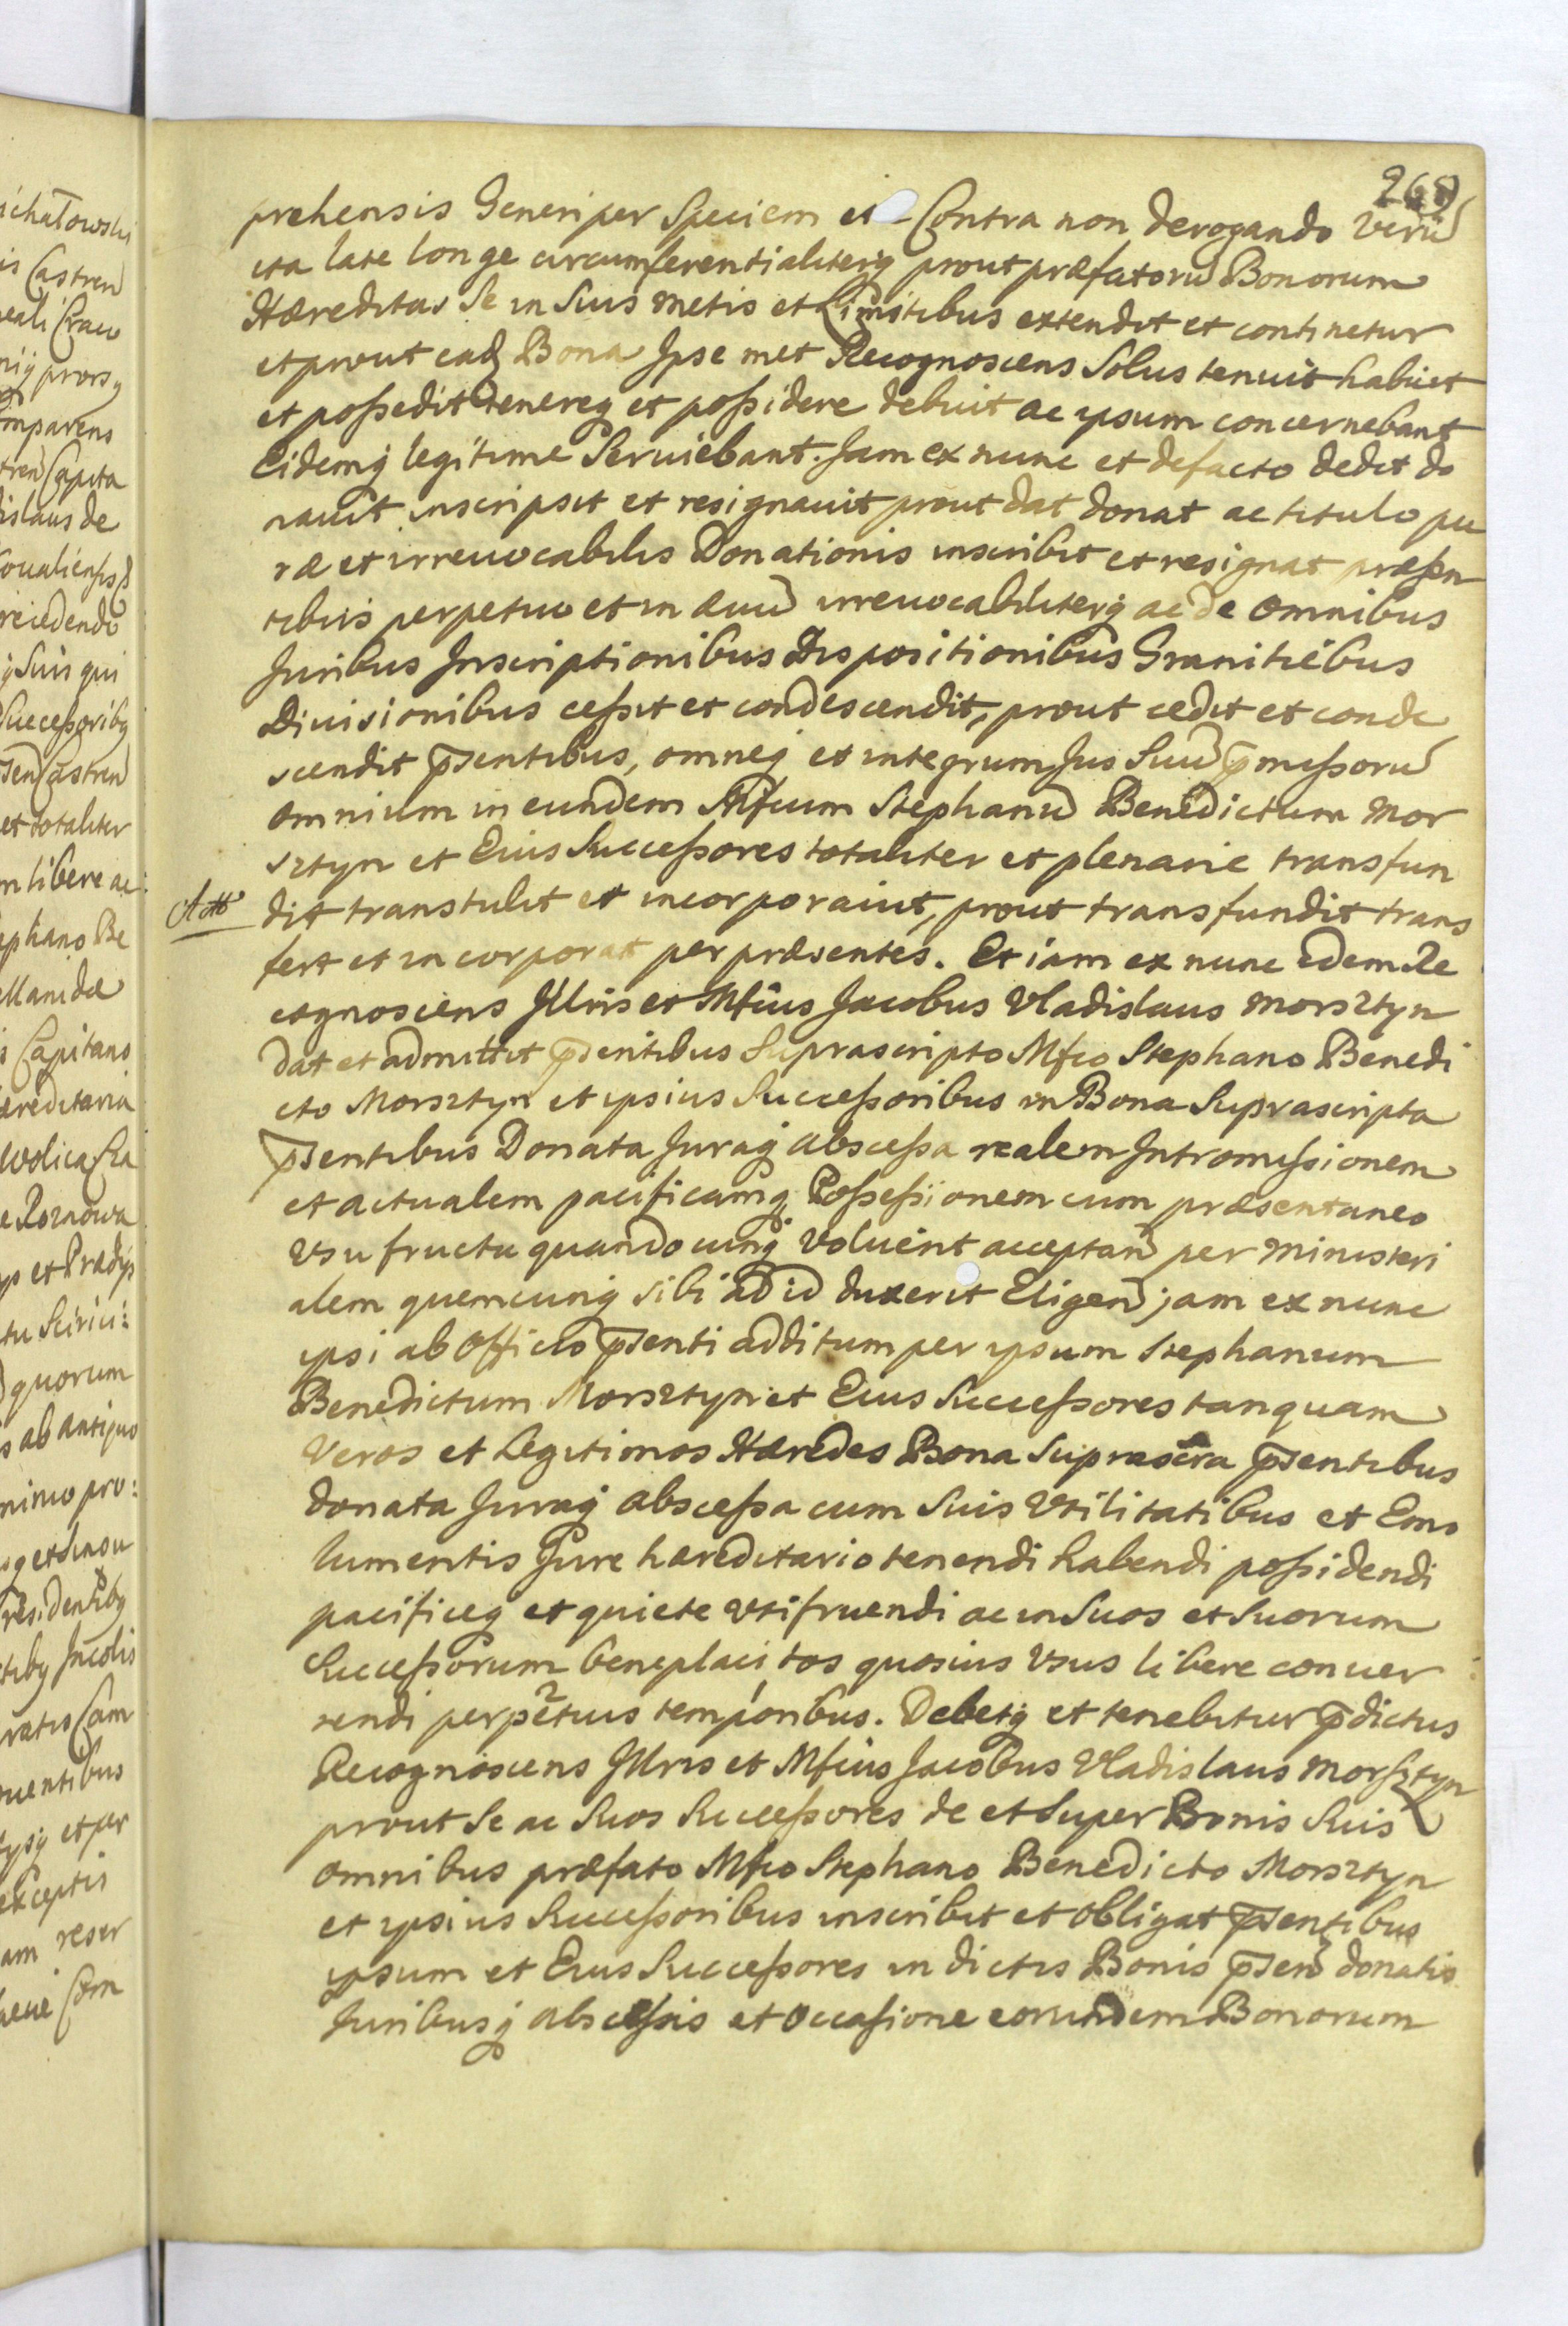 268
prehensis Generi per Speciem et Contra non derogando Verũ
ita late longe circumferentialiterq; prout præfatorũ Bonorum
Hæreditas Se in Suis metis et Limitibus extendit et continetur
et prout ead Bona Ipse met Recognoscens Solus tenuit habuit
et possedit tenereq; et possidere debuit ac ipsum concernebant
Eidemq; legitime Seruiebant. Jam ex nunc et de facto dedit do
nauit inscripsit et resignauit prout dat donat ac titulo pu
ræ et irreuocabilis Donationis inscribit et resignat præsen
tibus perpetuo et in æuũ irreuocabiliterq; ac de omnibus
Juribus Inscriptionibus Dispositionibus Granitiebus
Diuisionibus cessit et condescendit, prout cedit et conde
scendit p̃sentibus, omneq; et integrum Jus Suũ p̃missorũ
omnium in eundem Mfcum Stephanũ Benedictum Mor
sztyn et Eius Successores totaliter et plenarie transfun
dit transtulit et incorporauit, prout transfundit trans
fert et incorporat per præsentes. Et iam ex nunc idem Re
cognoscens Illris et Mfcus Jacobus Vladislaus Morsztyn
dat et admittit p̃sentibus Suprascripto Mfco Stephano Benedi
cto Morsztyn et ipsius Successoribus in Bona Suprascripta
p̃sentibus Donata Juraq; abscessa realem Intromissionem
et actualem pacificamq; Possessionem cum præsentaneo
Vsu fructu quandocunq; Voluerit acceptan per Ministeri
alem quemcunq; sibi ad id duxerit Eligen jam ex nunc
ipsi ab Officio p̃senti additum per ipsum Stephanum
Benedictum Morsztyn et Eius Successores tanquam
Veros et Legitimos Hæredes Bona Suprascra p̃sentibus
donata Juraq; abscessa cum Suis Vtilitatibus et Emo
lumentis Jure hæreditario tenendi habendi possidendi
pacificeq; et quiete vtifruendi ac in Suos et Suorum
Successorum beneplacitos quosuis Vsus libere conuer
tendi perpetuis temporibus. Debetq; et tenebitur p̃dictus
Recognoscens Illris et Mfcus Jacobus Vladislaus Morsztyn
prout Se ac Suos Successores de et Super Bonis Suis
omnibus præfato Mfco Stephano Benedicto Morsztyn
et ipsius Successoribus inscribit et obligat p̃sentibus
ipsum et Eius Successores in dictis Bonis p̃sen donatis
Juribusq; abscessis et occasione eorundem Bonorum